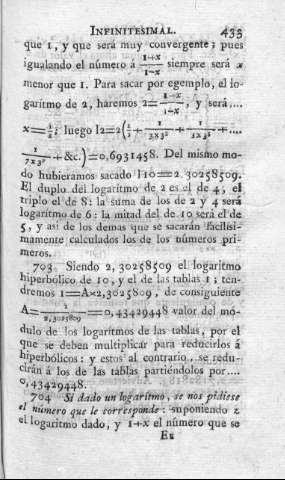 INFINITESIMAL. 435
que 1, y que será muy convergente; pues
igualando el número á 1+x/1-x siempre será x
menor que 1. Para sacar por ejemplo, el lo-
garítmo de 2, haremos 2=1+x/1-x, y será....
x=1/3; luego l2=2(1/3+1/3x3³+1/5x3⁵+....
1/7x3⁷+&c.)=0,6931458. Del mismo mo-
do hubieramos sacado l10=2 30258509.
El duplo del logarítmo de 2 es el de 4, el
triplo el de 8: la suma de los de 2 y 4 será
logarítmo de 6: la mitad del de 10 será el de
5, y asi de los demas que se sacarán facilisi-
mamente calculados los de los números pri-
meros.
703 Siendo 2, 30258509 el logarítmo
hiperbólico de 10, y el de las tablas 1; ten-
dremos 1=A×2,3025809, de consiguiente
A=1/2,3025809=0,43429448 valor del mó-
dulo de los logarítmos de las tablas, por el
que se deben multiplicar para reducirlos á
hiperbólicos: y estos al contrario, se redu-
cirán á los de las tablas partiéndolos por....
0,43429448.
704 Si dado un logarítmo, se nos pidiese
el número que le corresponde: suponiendo z
el logarítmo dado, y 1+x el número que se